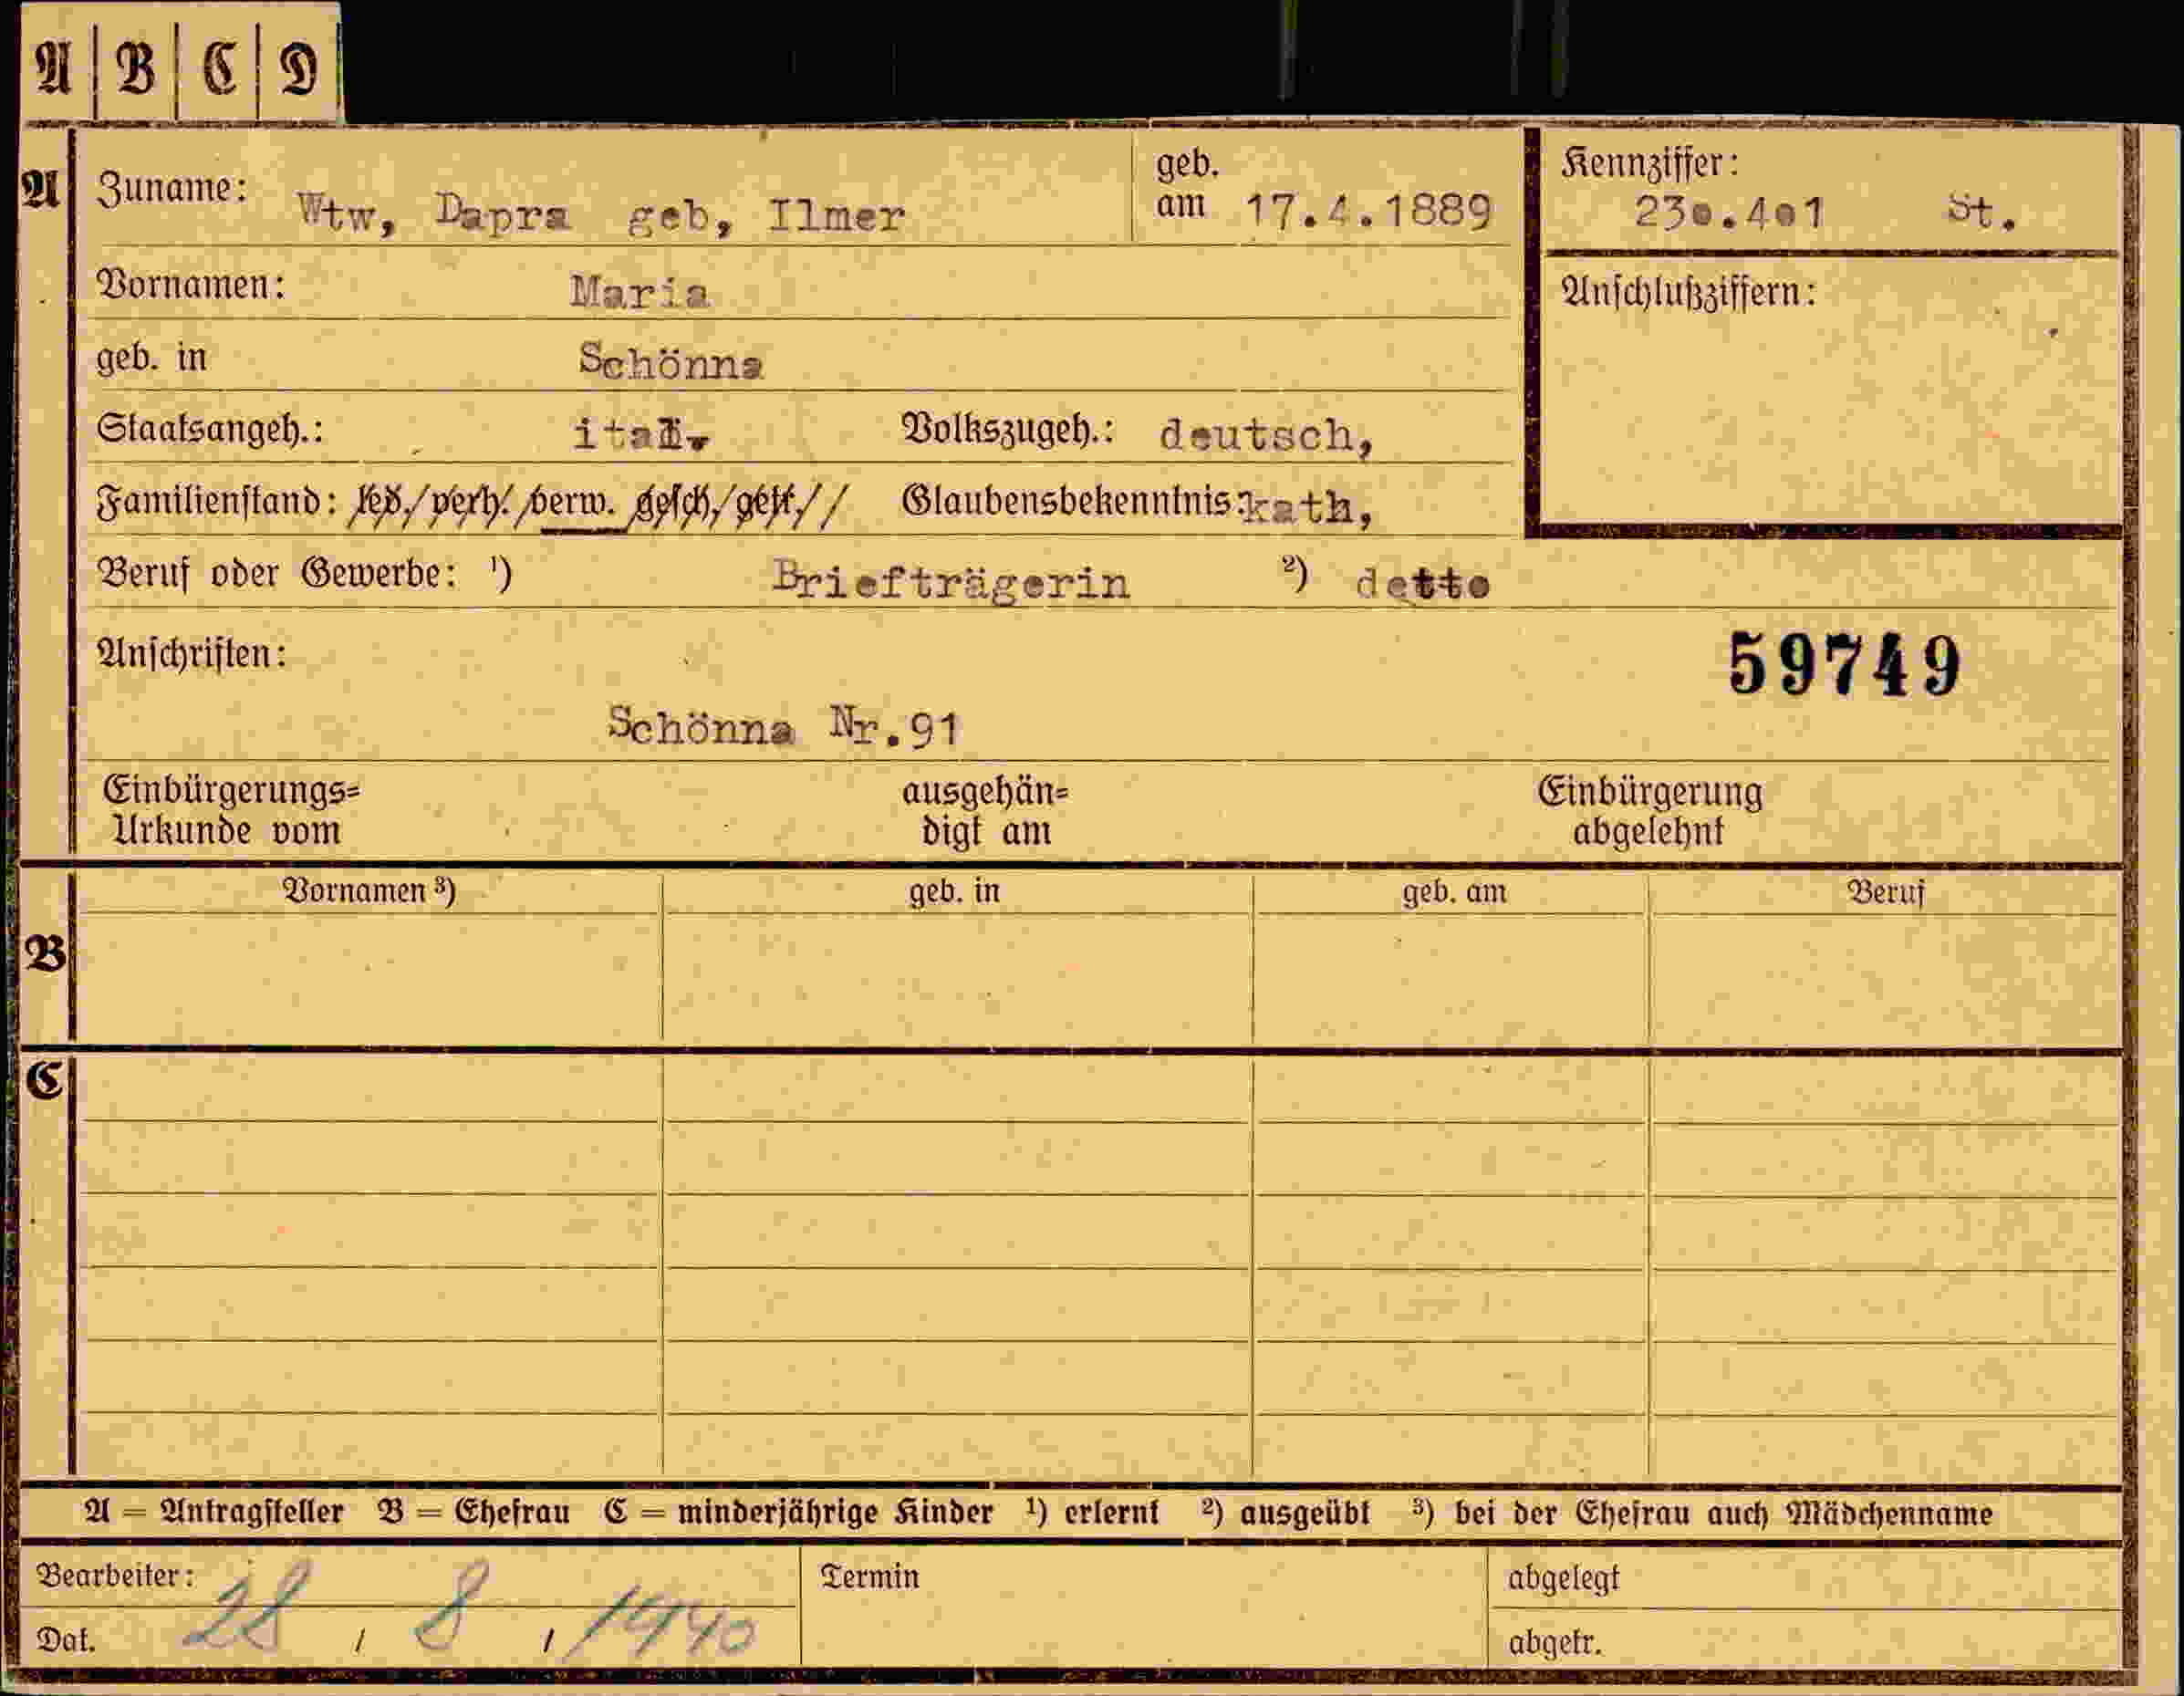 A | B | C | D
A Zuname: Wtw, Dapra geb, Ilmer
geb. am 17.4.1889
Kennziffer:
23o.4o1 St.
Vornamen: Maria
Anschlußziffern:
geb. in Schönna
Staatsangeh.: ital. Volkszugeh.: deutsch,
Familienstand: led./verh./verw. gesch./getr.// Glaubensbekenntnis: kath,
Beruf oder Gewerbe: ¹) Briefträgerin ²) detto
Anschriften:
59749
Schönna Nr.91
Einbürgerungs= ausgehän= Einbürgerung
Urkunde vom digt am abgelehnt
Vornamen ³) geb. in geb. am Beruf
B
C
A = Antragsteller B = Ehefrau C = minderjährige Kinder ¹) erlernt ²) ausgeübt ³) bei der Ehefrau auch Mädchenname
Bearbeiter: Termin abgelegt
Dat. 28 / 8 / 1940 abgetr.